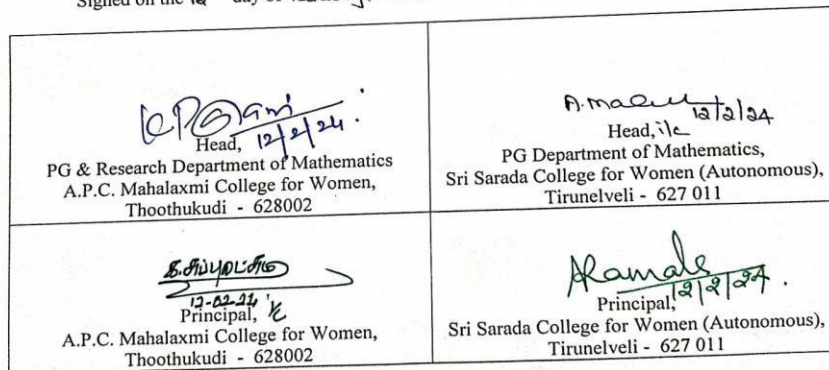 Signed on the 12 day of
12/2/24.
Head,
PG & Research Department of Mathematics
A.P.C. Mahalaxmi College for Women,
Thoothukudi - 628002
12/2/24
Head, i/c
PG Department of Mathematics,
Sri Sarada College for Women (Autonomous),
Tirunelveli - 627 011
12-02-24
Principal, i/c
A.P.C. Mahalaxmi College for Women,
Thoothukudi - 628002
12/2/24.
Principal,
Sri Sarada College for Women (Autonomous),
Tirunelveli - 627 011